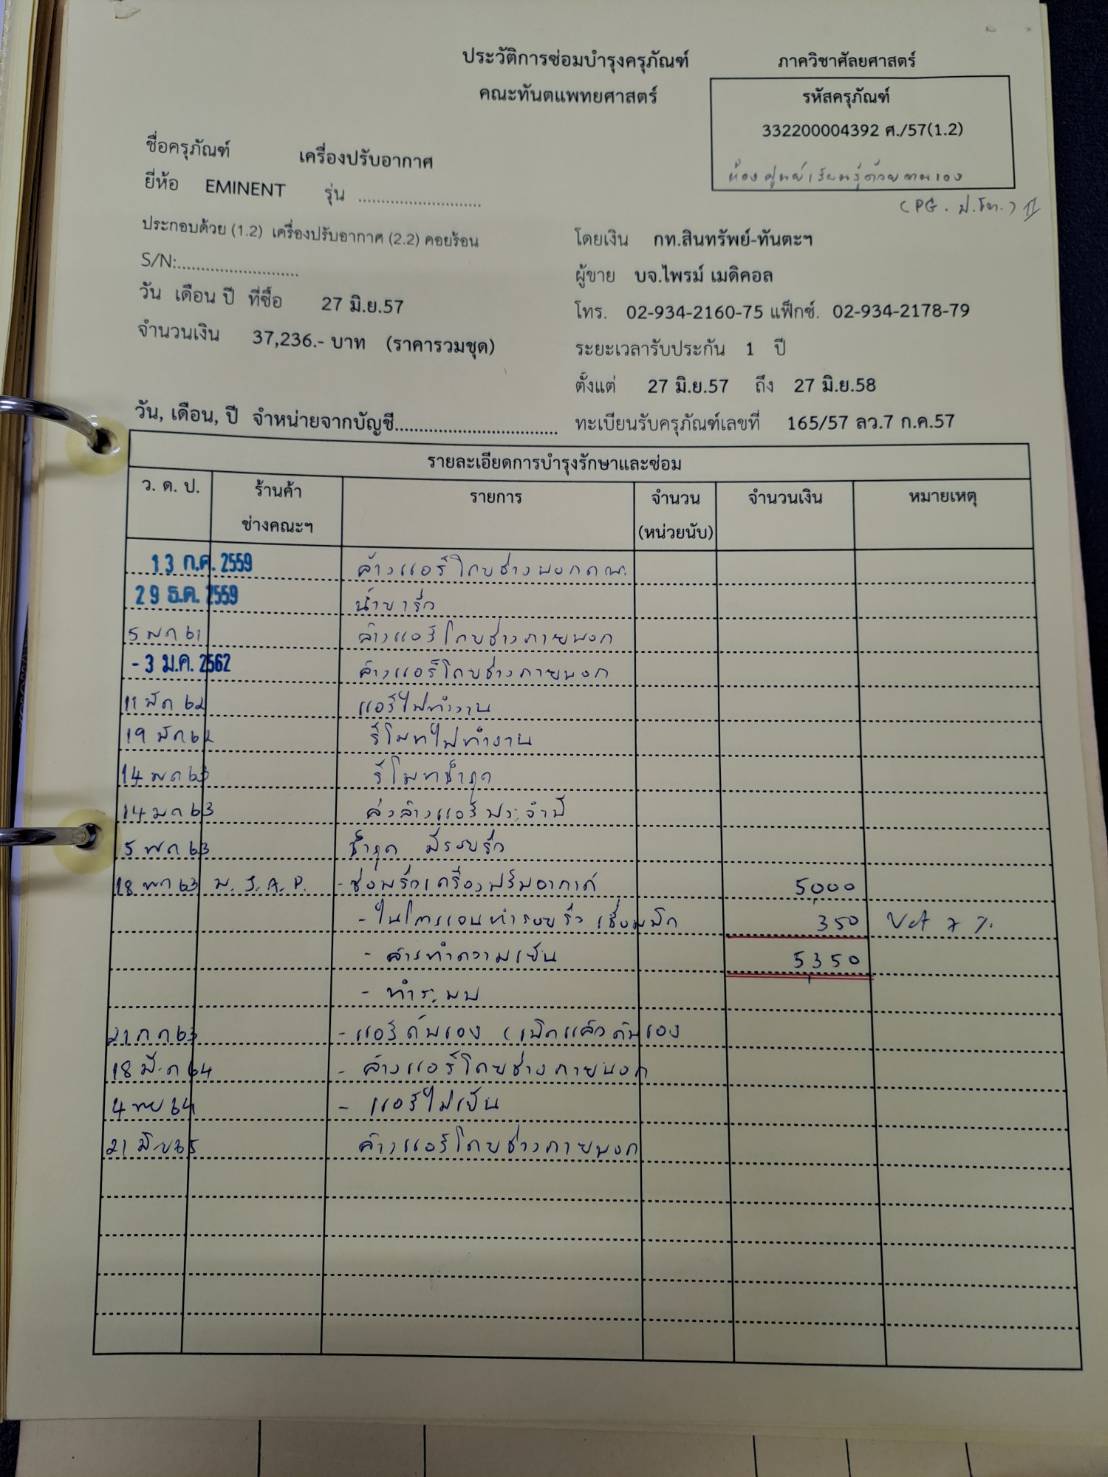 ประวัติการซ่อมบำรุงครุภัณฑ์
ภาควิชาศัลยศาสตร์
คณะทันตแพทยศาสตร์
รหัสครุภัณฑ์
332200004392 ศ./57(1.2)
ห้องศูนย์เรียนรู้ด้วยตนเอง
(PG. ป.โท.) II
ชื่อครุภัณฑ์ เครื่องปรับอากาศ
ยี่ห้อ EMINENT รุ่น
ประกอบด้วย (1.2) เครื่องปรับอากาศ (2.2) คอยร้อน
โดยเงิน กท.สินทรัพย์-ทันตะฯ
S/N:
ผู้ขาย บจ.ไพรม์ เมดิคอล
วัน เดือน ปี ที่ซื้อ 27 มิ.ย.57
โทร. 02-934-2160-75 แฟ็กซ์. 02-934-2178-79
จำนวนเงิน 37,236.- บาท (ราคารวมชุด)
ระยะเวลารับประกัน 1 ปี
ตั้งแต่ 27 มิ.ย.57 ถึง 27 มิ.ย.58
วัน, เดือน, ปี จำหน่ายจากบัญชี
ทะเบียนรับครุภัณฑ์เลขที่ 165/57 ลว.7 ก.ค.57
รายละเอียดการบำรุงรักษาและซ่อม
ว. ด. ป. ร้านค้า รายการ จำนวน จำนวนเงิน หมายเหตุ
ช่างคณะฯ (หน่วยนับ)
13 ก.ค. 2559 ล้างแอร์โดยช่างนอกคณะ
29 ธ.ค. 2559 น้ำยารั่ว
5 มค 61 ล้างแอร์โดยช่างภายนอก
- 3 ม.ค. 2562 ล้างแอร์โดยช่างภายนอก
11 มีค 62 แอร์ไม่ทำงาน
19 มีค 62 รีโมทไม่ทำงาน
14 มค 63 รีโมทชำรุด
14 มค 63 ส่งล้างแอร์ประจำปี
5 พค 63 ชำรุด มีรอยรั่ว
18 พค 63 - ซ่อมรั่วเครื่องปรับอากาศ 5,000
350 Vat 7 %
- สารทำความเย็น 5,350
- ทำระบบ
21 กค 63 - แอร์ดับเอง (เปิดแล้วดับเอง
18 มี.ค 64 - ล้างแอร์โดยช่างภายนอก
64 - แอร์ไม่เย็น
21 มิ.ย 65 ล้างแอร์โดยช่างภายนอก